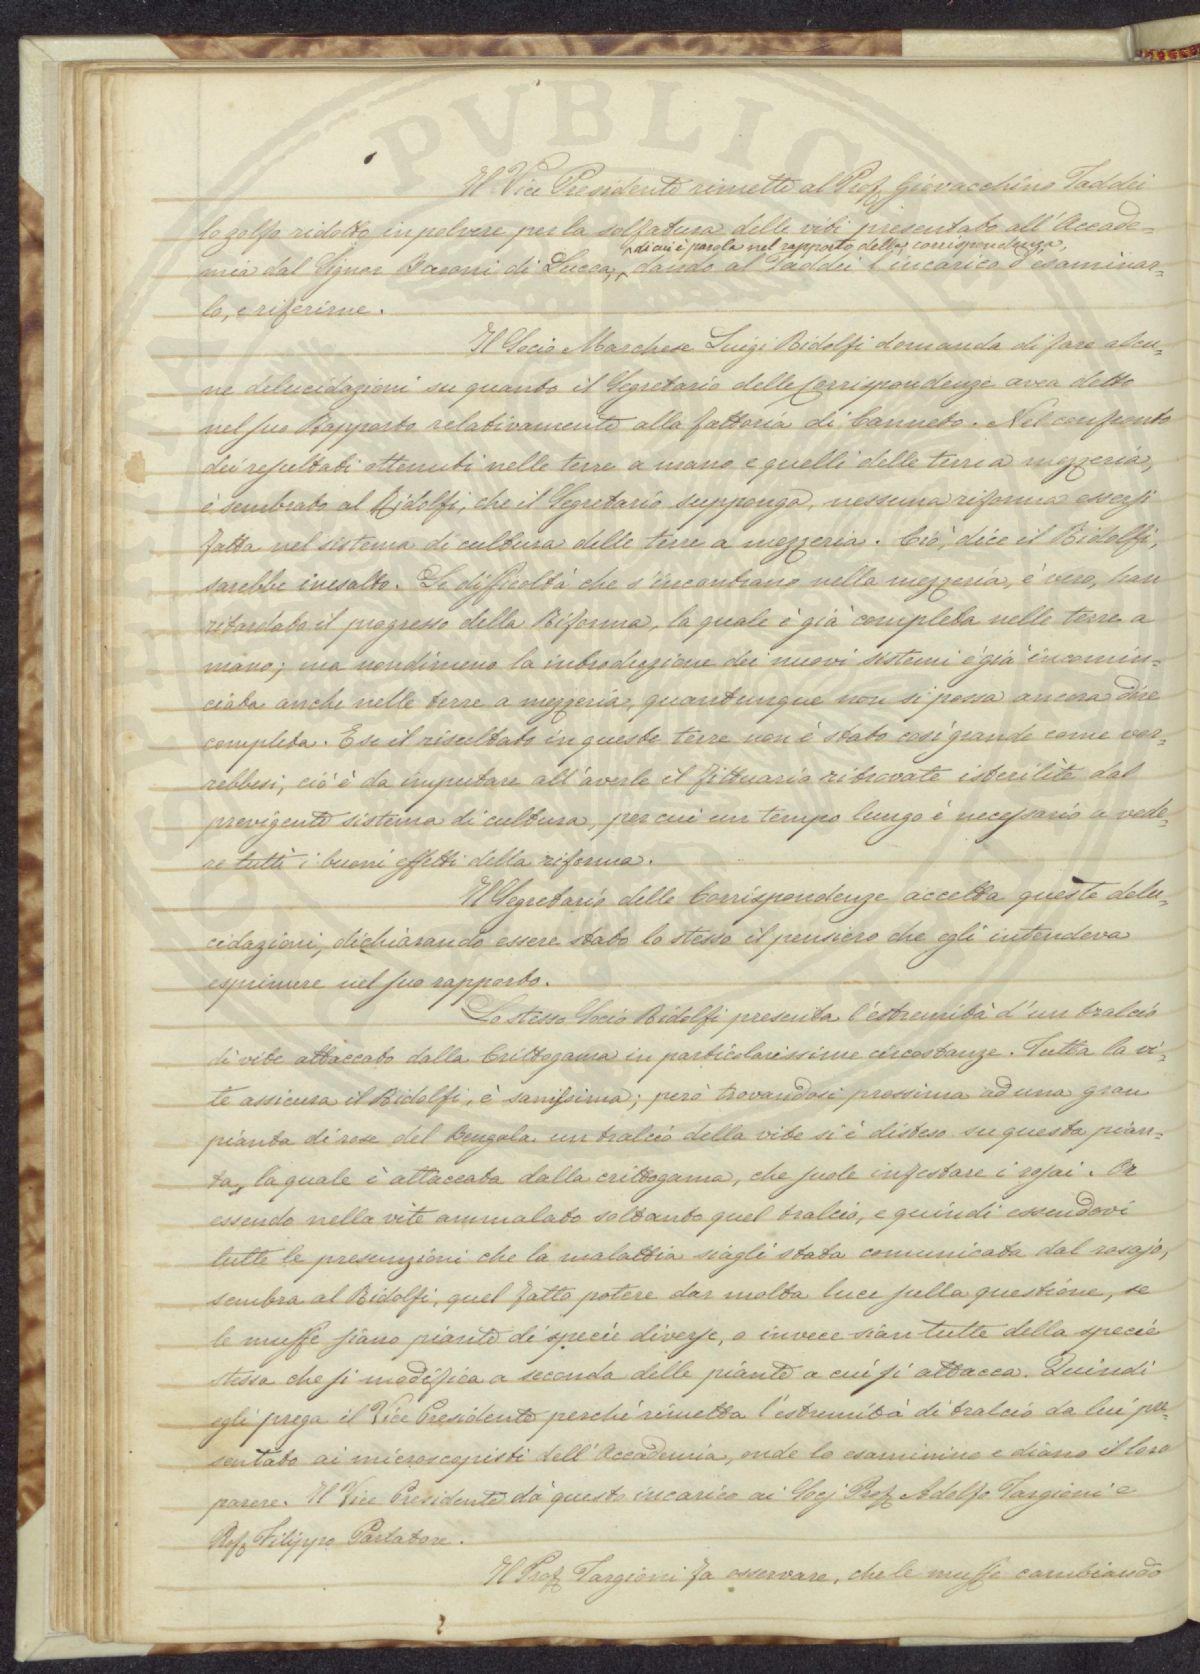 Il Vice Presidente rimette al Prof. Giovacchino Taddei
lo zolfo ridotto in polvere per la solfatura delle viti presentato all'Accade=
di cui è parola nel rapporto della corrispondenza,
mia dal Signor Baroni di Lucca, dando al Taddei l'incarico d'esaminar=
lo, e riferirne.
Il Socio Marchese Luigi Ridolfi domanda di fare alcu=
ne delucidazioni su quanto il Segretario delle Corrispondenze avea detto
nel suo Rapporto relativamente alla fattoria di Canneto. Nel confronto
dei resultati ottenuti nelle terre a mano e quelli delle terre a mezzeria,
è sembrato al Ridolfi, che il Segretario supponga, nessuna riforma essersi
fatta nel sistema di cultura delle terre a mezzeria. Ciò, dice il Ridolfi,
sarebbe inesatto. Le difficoltà che s'incontrano nella mezzeria, è vero, han
ritardato il progresso della Riforma, la quale è già completa nelle terre a
mano; ma nondimeno la introduzione dei nuovi sistemi è già incomin=
ciata anche nelle terre a mezzeria, quantunque non si possa ancora dire
completa. E se il risultato in queste terre non è stato così grande come vor=
rebbesi, ciò è da imputare all'averle il fittuario ritrovate isterilite dal
previgente sistema di cultura, per cui un tempo lungo è necessario a vede=
re tutti i buoni effetti della riforma.
Il Segretario delle Corrispondenze accetta queste delu=
cidazioni, dichiarando essere stato lo stesso il pensiero che egli intendeva
esprimere nel suo rapporto.
Lo stesso Socio Ridolfi presenta l'estremità d'un tralcio
di vite attaccato dalla Crittogama in particolarissime circostanze. Tutta la vi=
te assicura il Ridolfi, è sanissima; però trovandosi prossima ad una gran
pianta di rose del Bengala un tralcio della vite si è disteso su questa pian=
ta, la quale è attaccata dalla crittogama, che suole infestare i rosai. Or
essendo nella vite ammalato soltanto quel tralcio, e quindi essendovi
tutte le presunzioni che la malattia siagli stata comunicata dal rosajo,
sembra al Ridolfi, quel fatto potere dar molta luce sulla questione, se
le muffe siano piante di specie diverse, o invece sian tutte della specie
stessa che si modifica a seconda delle piante a cui si attacca. Quindi
egli prega il Vice Presidente perché rimetta l'estremità di tralcio da lui pre=
sentato ai microscopisti dell'Accademia, onde lo esaminino e diano il loro
parere. Il Vice Presidente dà questo incarico ai Socj Prof. Adolfo Targioni e
Prof. Filippo Parlatore.
Il Prof. Targioni fa osservare, che le muffe cambiando